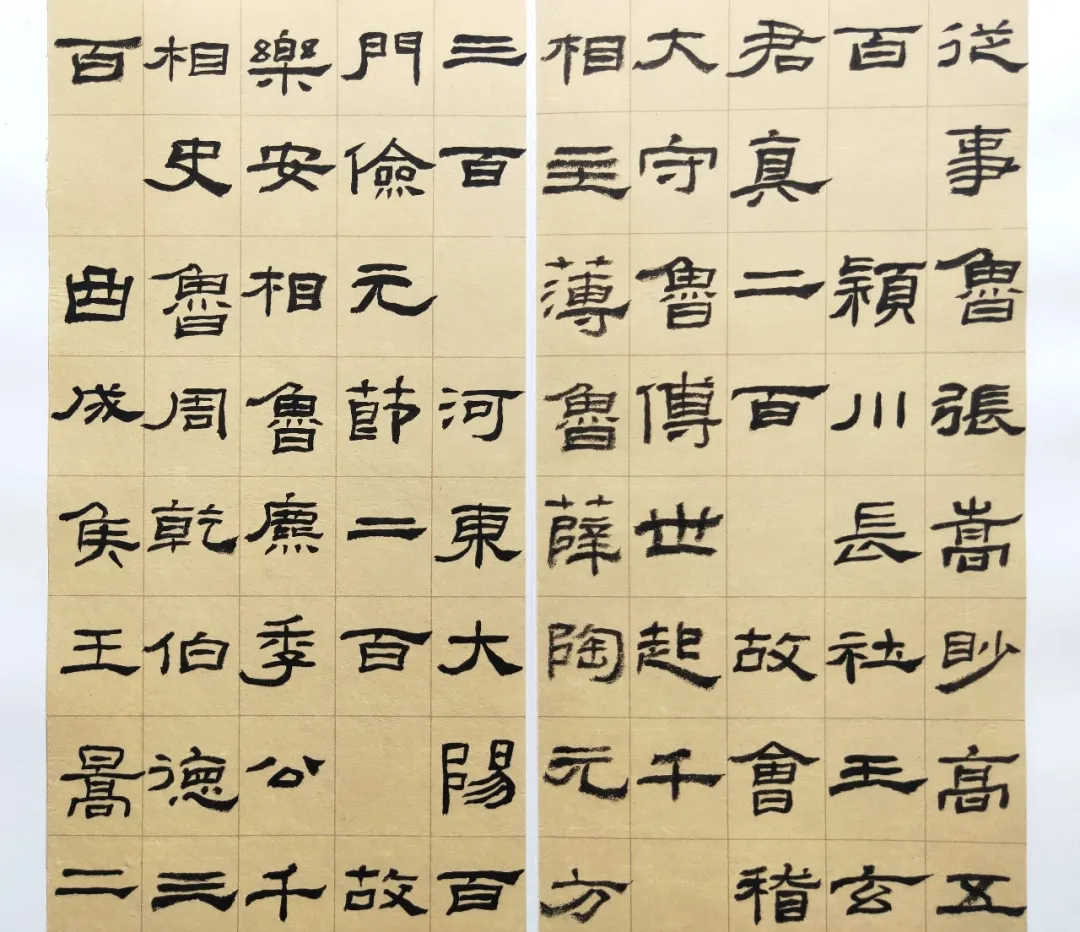 從事魯張嵩眇高五
百 穎川長社王玄
君真二百 故會稽
大守魯傅世起千
相主薄魯薛陶元方
三百 河東大陽百
門儉元節二百 故
樂安相魯麃季公千
相史魯周乾伯德三
百 曲成侯王暠二